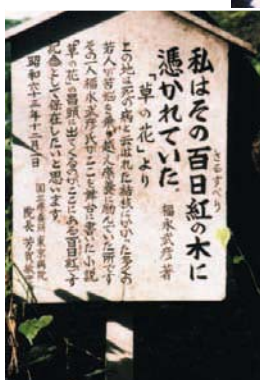 私はその百日紅の木に
さるすべり
憑かれていた。
「草の花」より
福永武彦 著
この地は死の病と云はれた結核にかかった多くの
若人が苦悩を乗り越え療養に励んでいた所です
その一人福永武彦氏がここを舞台に書いた小説
「草の花」の冒頭に出てくるのがここにある百日紅です
記念として保存したいと思います。
昭和六十三年十二月一日
国立療養所 東京病院
院長 芳賀敏彦